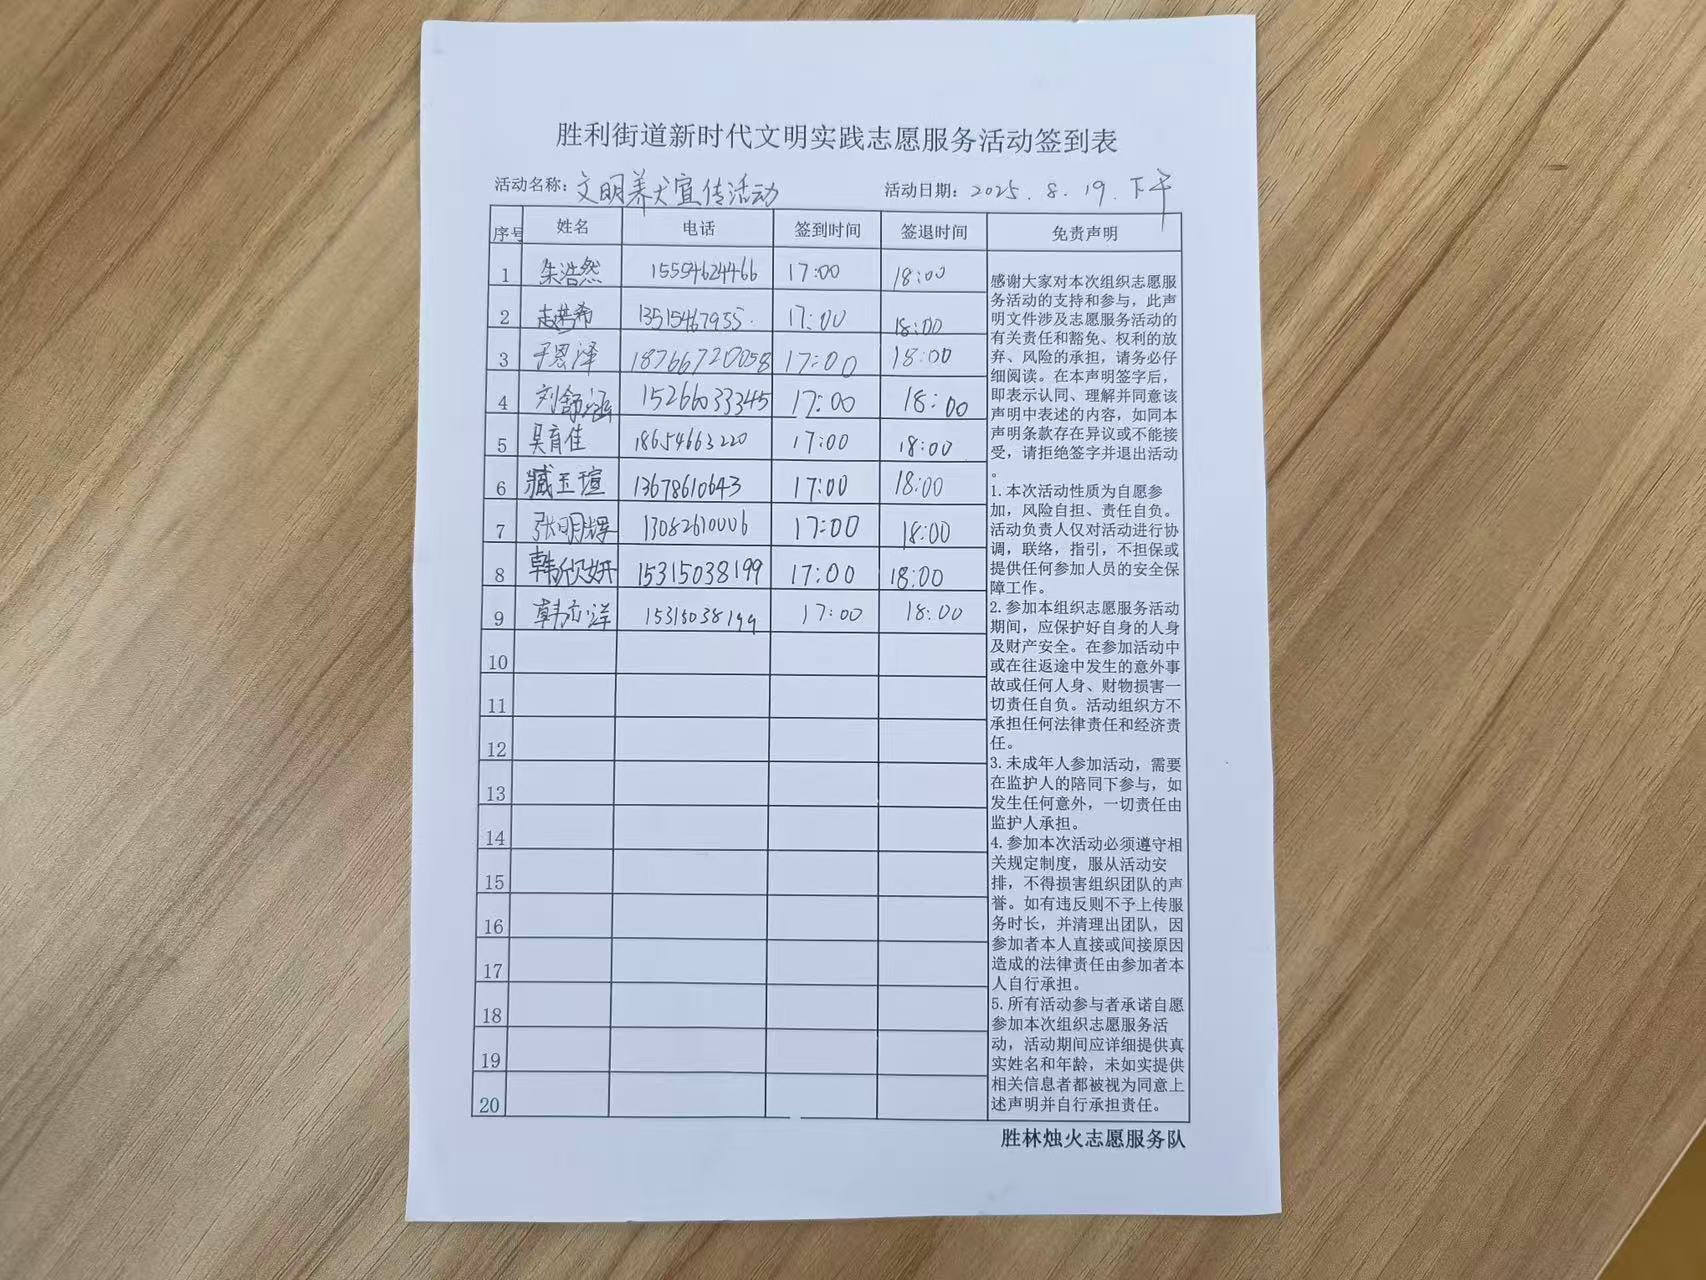 胜利街道新时代文明实践志愿服务活动签到表
活动名称：文明养犬宣传活动 活动日期：2025.8.19.下午
序号 姓名 电话 签到时间 签退时间 免责声明
1 朱浩然 15554624466 17:00 18:00
2 赵若希 13515467955. 17:00 18:00
3 于恩泽 18766720058 17:00 18:00
4 刘舒涵 15266033345 17:00 18:00
5 吴育佳 18654663220 17:00 18:00
6 臧玉瑄 13678610643 17:00 18:00
7 张明辉 13082610006 17:00 18:00
8 韩欣妍 15315038199 17:00 18:00
9 韩 洋 15315038199 17:00 18:00
10
11
12
13
14
15
16
17
18
19
20
感谢大家对本次组织志愿服
务活动的支持和参与，此声
明文件涉及志愿服务活动的
有关责任和豁免、权利的放
弃、风险的承担，请务必仔
细阅读。在本声明签字后，
即表示认同、理解并同意该
声明中表述的内容，如同本
声明条款存在异议或不能接
受，请拒绝签字并退出活动
。
1.本次活动性质为自愿参
加，风险自担、责任自负。
活动负责人仅对活动进行协
调，联络，指引，不担保或
提供任何参加人员的安全保
障工作。
2.参加本组织志愿服务活动
期间，应保护好自身的人身
及财产安全。在参加活动中
或在往返途中发生的意外事
故或任何人身、财物损害一
切责任自负。活动组织方不
承担任何法律责任和经济责
任。
3.未成年人参加活动，需要
在监护人的陪同下参与，如
发生任何意外，一切责任由
监护人承担。
4.参加本次活动必须遵守相
关规定制度，服从活动安
排，不得损害组织团队的声
誉。如有违反则不予上传服
务时长，并清理出团队，因
参加者本人直接或间接原因
造成的法律责任由参加者本
人自行承担。
5.所有活动参与者承诺自愿
参加本次组织志愿服务活
动，活动期间应详细提供真
实姓名和年龄，未如实提供
相关信息者都被视为同意上
述声明并自行承担责任。
胜林烛火志愿服务队